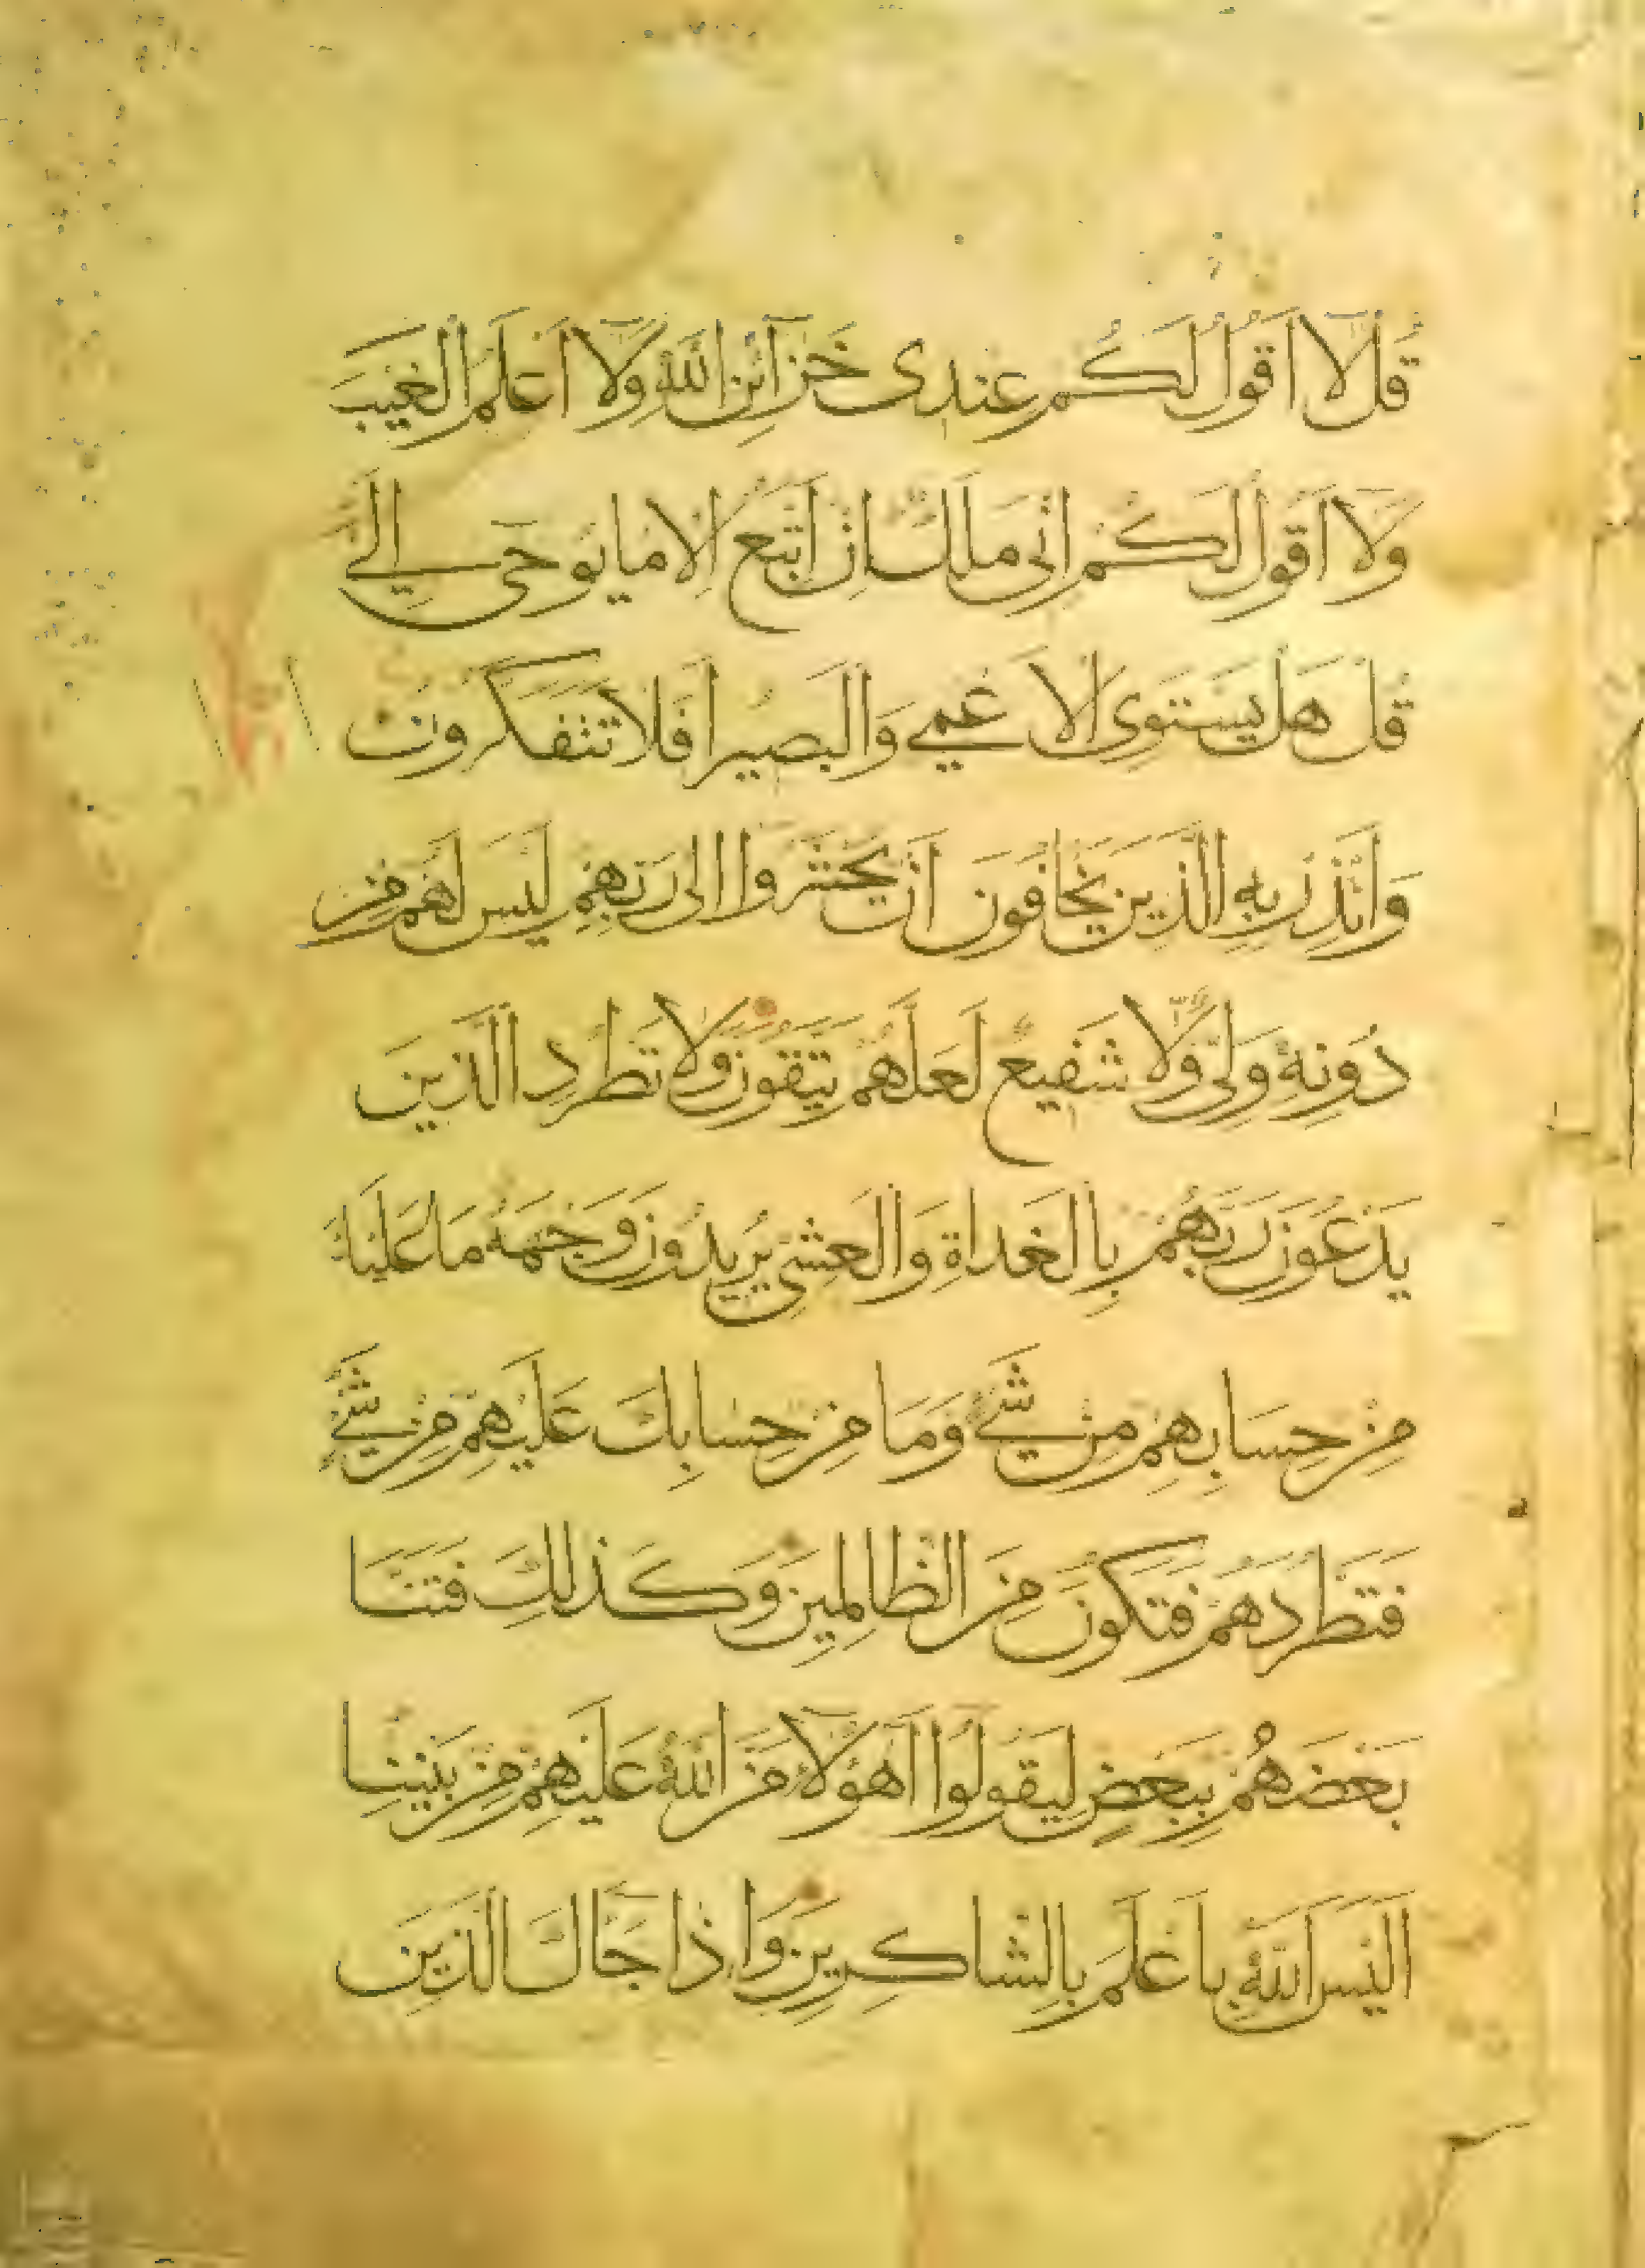 قُلْ لَآ اَقُولُ لَكُمْ عِنْدِى خَزَآئِنُ اللّٰهِ وَلَآ اَعْلَمُ الْغَيْبَ
وَلَا اَقُولُ لَكُمْ اِنِّى مَلَكٌ اِنْ اَتَّبِعُ اِلَّا مَا يُوحٰى اِلَىَّ
قُلْ هَلْ يَسْتَوِى الْاَعْمٰى وَالْبَصِيرُ اَفَلَا تَتَفَكَّرُونَ
وَاَنْذِرْ بِهِ الَّذِينَ يَخَافُونَ اَنْ يُحْشَرُوا اِلٰى رَبِّهِمْ لَيْسَ لَهُمْ مِنْ
دُونِهِ وَلِىٌّ وَّلَا شَفِيعٌ لَعَلَّهُمْ يَتَّقُونَ وَلَا تَطْرُدِ الَّذِينَ
يَدْعُونَ رَبَّهُمْ بِالْغَدَاةِ وَالْعَشِىِّ يُرِيدُونَ وَجْهَهُ مَا عَلَيْكَ
مِنْ حِسَابِهِمْ مِنْ شَىْءٍ وَمَا مِنْ حِسَابِكَ عَلَيْهِمْ مِنْ شَىْءٍ
فَتَطْرُدَهُمْ فَتَكُونَ مِنَ الظَّالِمِينَ وَكَذٰلِكَ فَتَنَّا
بَعْضَهُمْ بِبَعْضٍ لِيَقُولُوا اَهٰؤُلَآءِ مَنَّ اللّٰهُ عَلَيْهِمْ مِنْ بَيْنِنَا
اَلَيْسَ اللّٰهُ بِاَعْلَمَ بِالشَّاكِرِينَ وَاِذَا جَآكَ الَّذِينَ